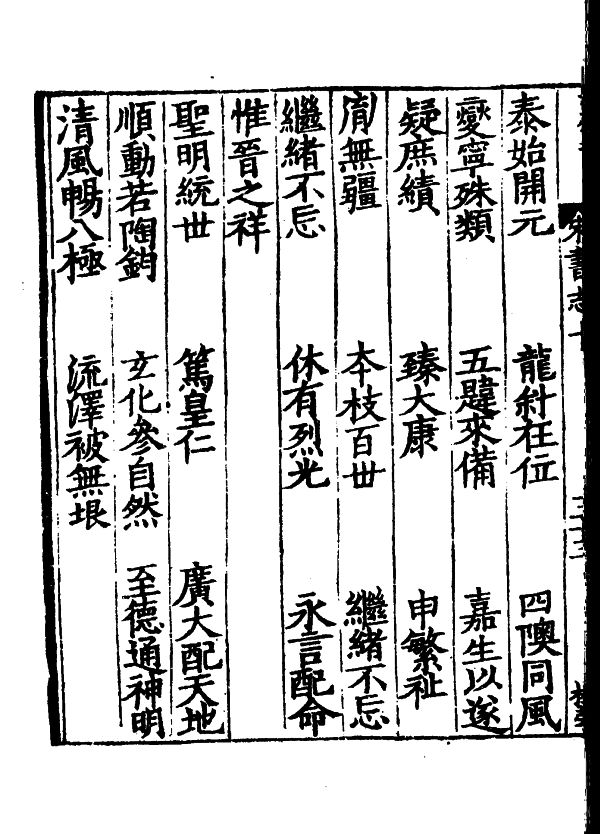 書志
泰始開元 龍升在位 四隩同風
燮寧殊類 五韙來備 嘉生以遂
疑庶績 臻大康 申繁祉
胤無疆 本枝百世 繼緒不忘
繼緒不忘 休有烈光 永言配命
惟晉之祥
聖明統世 篤皇仁 廣大配天地
順動若陶鈞 玄化參自然 至德通神明
清風暢八極 流澤被無垠